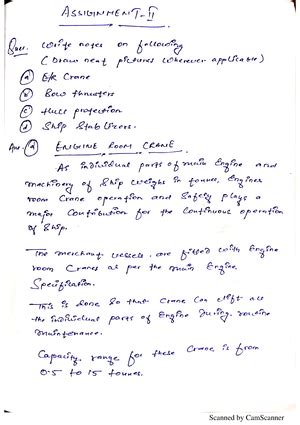 ASSIGNMENT-II
Ques. Write notes on following
(Draw neat pictures wherever applicable)
(a) E/R Crane
(b) Bow thrusters
(c) Hull protection
(d) Ship Stabilizers.
Ans. (a) ENGINE ROOM CRANE.
As individual parts of main Engine and
machinery of Ship weighs in tonnes, Engine
room Crane operation and Safety plays a
major Contribution for the Continuous operation
of Ship.
The merchant vessels are fitted with Engine
room Cranes as per the main Engine
Specification.
This is done so that crane can lift all
the individual parts of Engine during routine
maintenance.
Capacity range for these Crane is from
0.5 to 15 tonnes.
Scanned by CamScanner